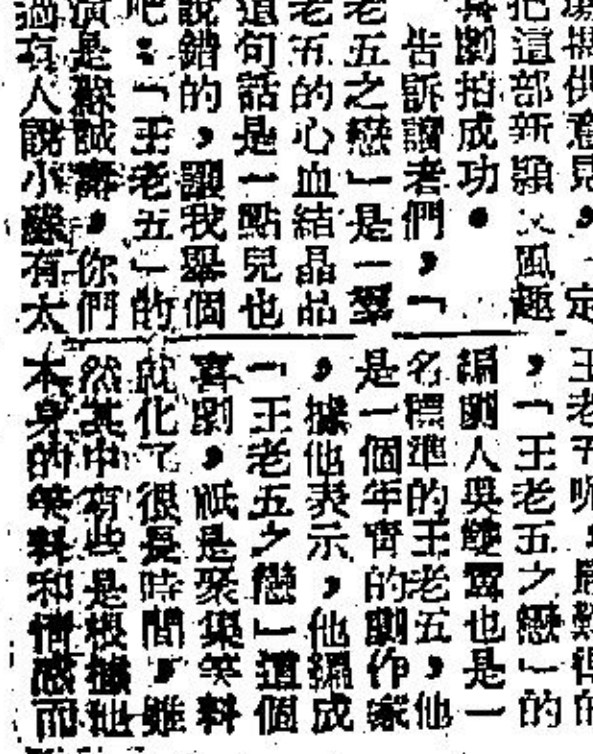 提供意見，一定
把這部新穎又風趣
喜劇拍成功。
告訴讀者們，「
老五之戀」是一羣
老五的心血結晶品
這句話是一點兒也
說錯的，讓我舉個
吧：「王老五」的
演是蘇誠壽，你們
過有人說小蘇有太
王老五呢，最難得的
，「王老五之戀」的
編劇人吳雙翼也是一
名標準的王老五，他
是一個年青的劇作家
，據他表示，他編成
「王老五之戀」這個
喜劇，祇是聚集笑料
就化了很長時間，雖
然其中有些是根據他
本身的笑料和情感而